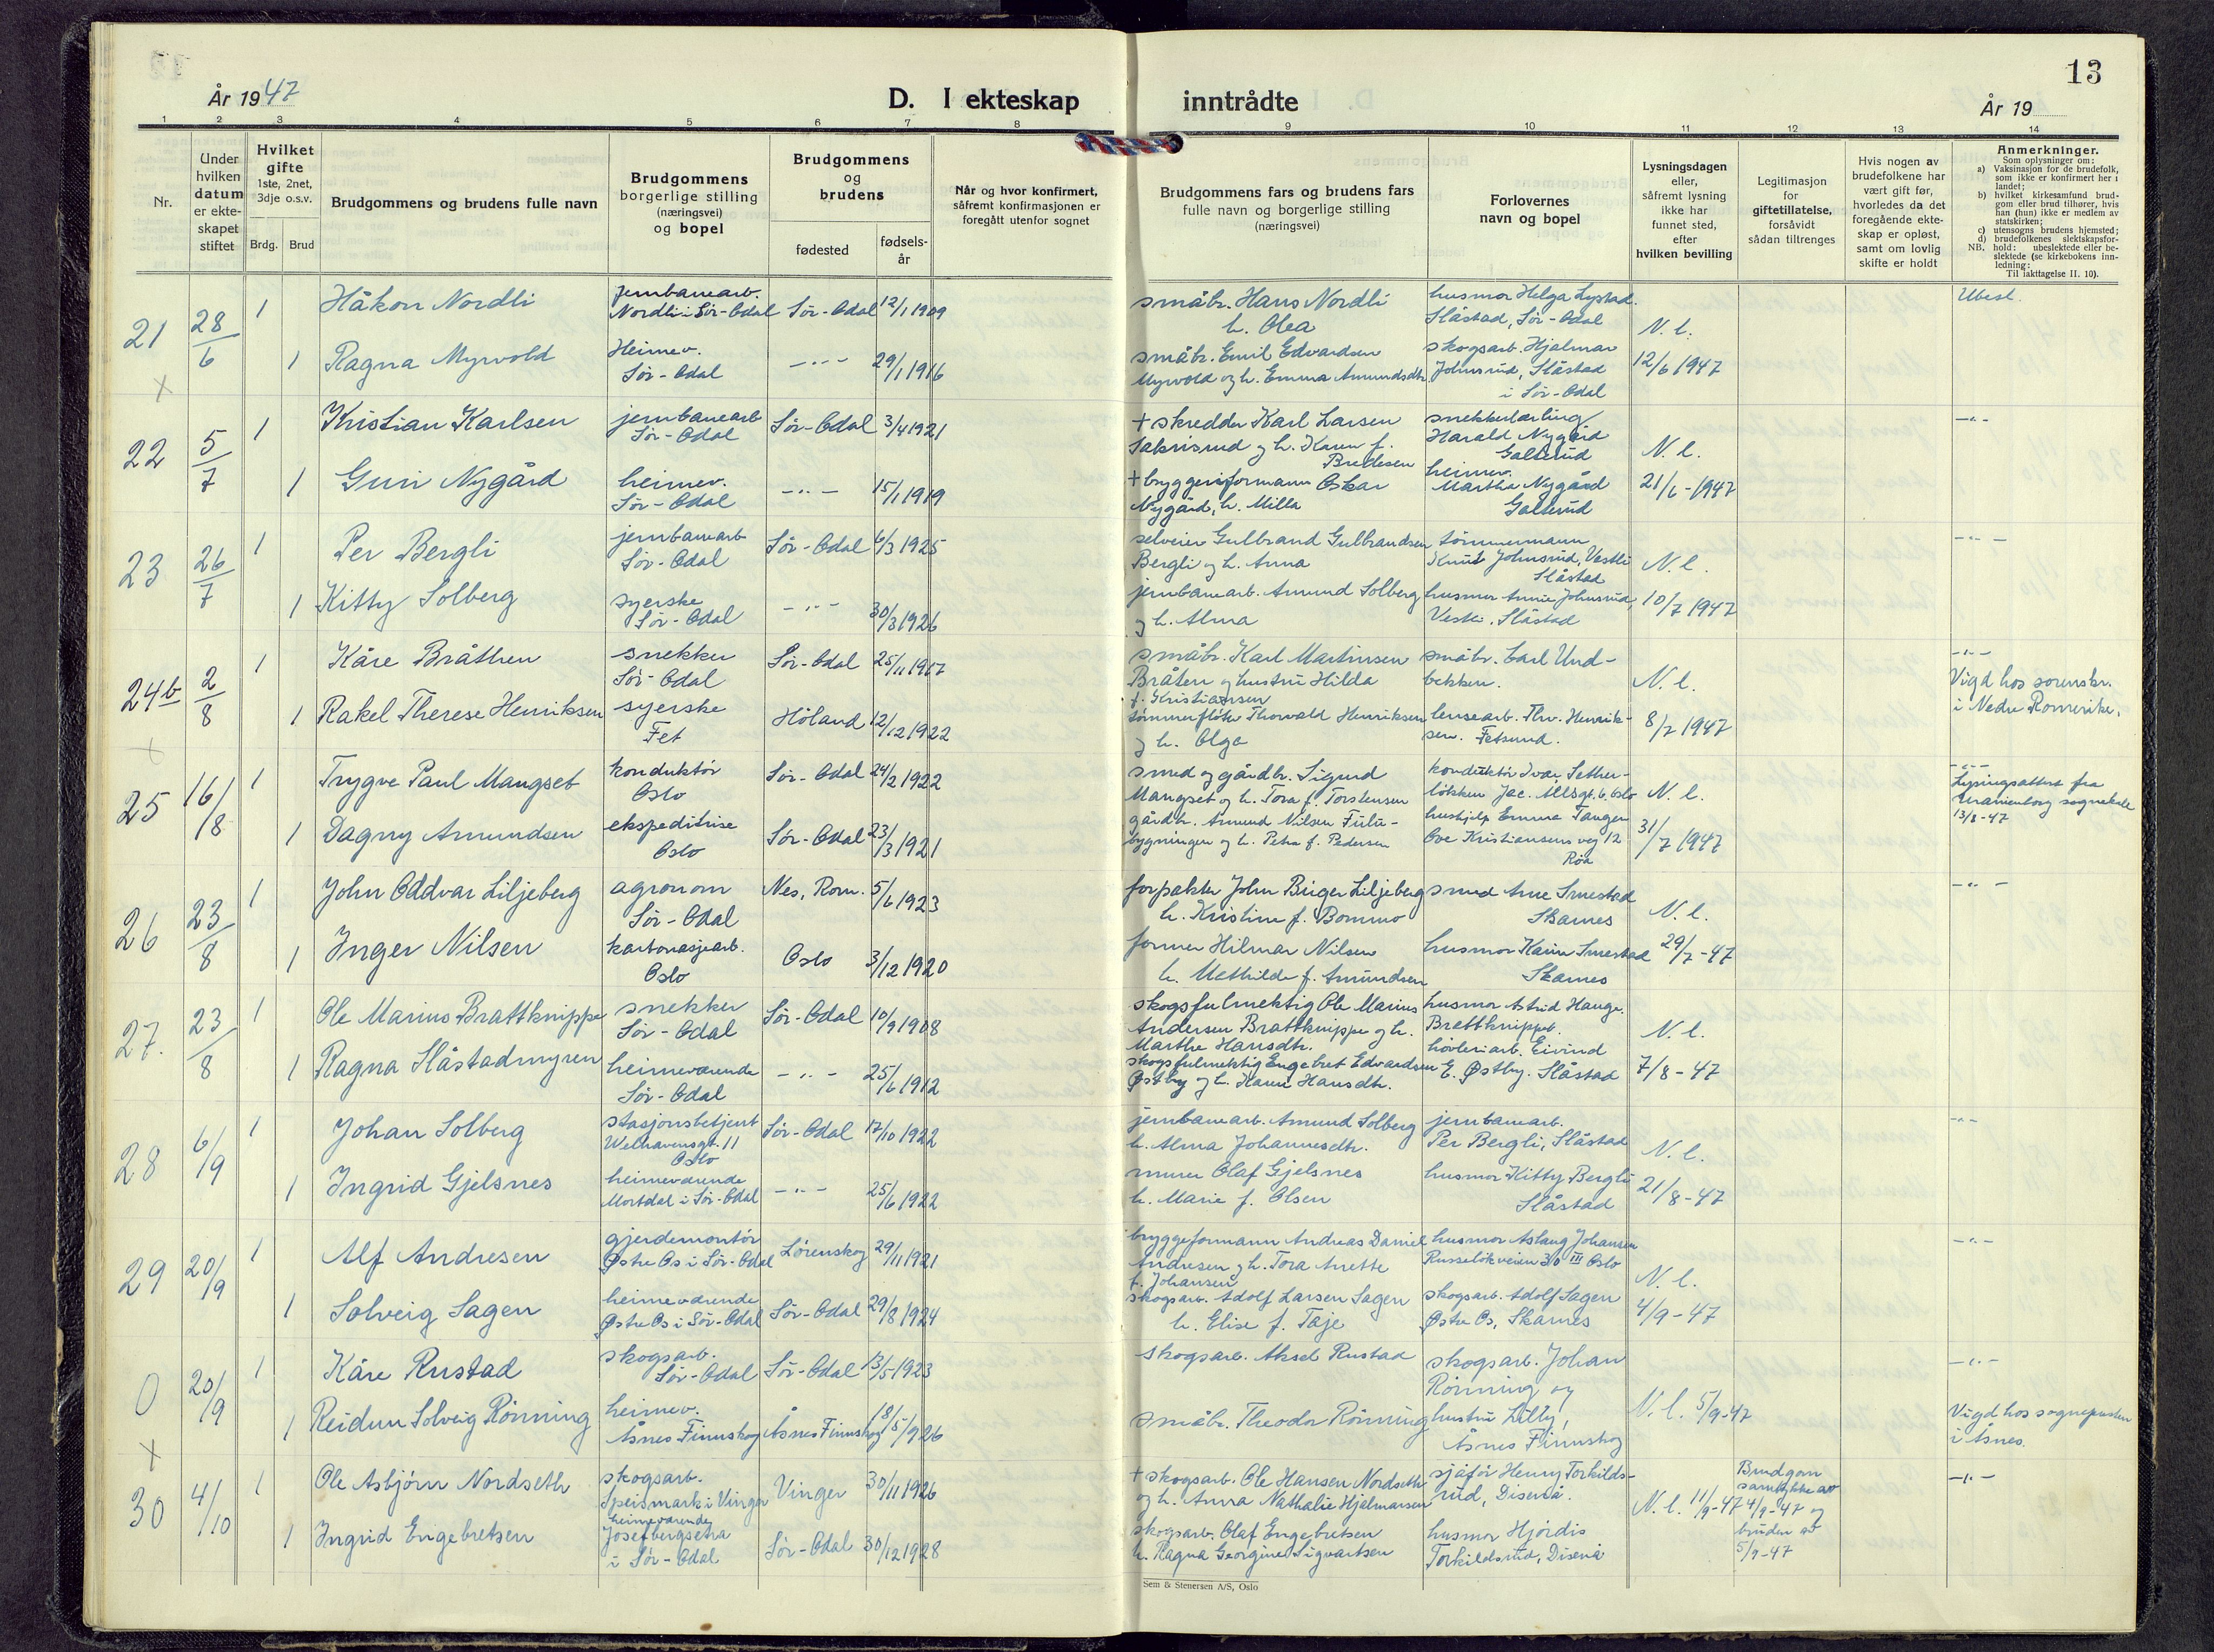 År 1947
D. I ekteskap
inntrådte
13
År 19
1 2 3 4 5 6 7 8 9 10 11 12 13 14
Nr.
Under hvilken datum er ekteskapet stiftet
Hvilket gifte
1ste, 2net, 3dje o.s.v.
Brdg. Brud
Brudgommens og brudens fulle navn
Brudgommens borgerlige stilling (næringsvei) og bopel
Brudgommens og brudens
fødested
fødsels-år
Når og hvor konfirmert, såfremt konfirmasjonen er foregått utenfor sognet
Brudgommens fars og brudens fars fulle navn og borgerlige stilling (næringsvei)
Forlovernes navn og bopel
Lysningsdagen eller, såfremt lysning ikke har funnet sted, efter hvilken bevilling
Legitimasjon for giftetillatelse, forsåvidt sådan tiltrenges
Hvis nogen av brudefolkene har vært gift før, hvorledes da det foregående ekteskap er opløst, samt om lovlig skifte er holdt
Anmerkninger.
Som oplysninger om:
a) Vaksinasjon for de brudefolk, som ikke er konfirmert her i landet;
b) hvilket kirkesamfund brudgom eller brud tilhører, hvis han (hun) ikke er medlem av statskirken;
c) utensogns brudens hjemsted;
d) brudefolkenes slektskapsforhold: ubeslektede eller beslektede (se kirkebokens innledning:
NB. Til iakttagelse II. 10).
21 28/6 1 Håkon Nordli jernbanearb. Nordli i Sør-Odal Sør-Odal 12/1 1909 småbr. Hans Nordli h. Olea husmor Helga Lystad Slåstad, Sør-Odal N. l. Ubesl.
1 Ragna Myrvold Heimev. Sør-Odal -"- 29/1 1916 småbr. Emil Edvardsen Myrvold og h. Emma Amundsdtr skogsarb. Hjalmar Johnsrud, Slåstad i Sør-Odal 12/6 1947
22 5/7 1 Kristian Karlsen jernbanearb Sør-Odal Sør-Odal 3/4 1921 + skredder Karl Larsen og h. Karen f. Bredesen snekkerlærling Harald Nygård Galterud N. l. -"-
1 Guri Nygård heimev. Sør-Odal -"- 15/1 1919 + bryggeriformann Oskar Nygård, h. Milla heimev. Martha Nygård Galterud 21/6-1947
23 26/7 1 Per Bergli jernbanearb Sør-Odal Sør-Odal 6/3 1925 selveier Gulbrand Gulbrandsen Bergli og h. Anna tømmermann Knut Johnsrud, Vestli Slåstad N. l. -"-
1 Kitty Solberg syerske Sør-Odal -"- 30/3 1926 jernbanearb. Amund Solberg og h. Alma husmor Annie Johnsrud, Vestli. Slåstad 10/7 1947
24b 2/8 1 Kåre Bråthen snekker Sør-Odal Sør-Odal 25/11 1917 småbr. Karl Martinsen Bråten og hustru Hilda f. Kristiansen småbr. Carl Undbekken. N. l. -"- Vigd hos sorenskr. i Nedre Romerike.
1 Rakel Therese Henriksen syerske Fet Höland 12/12 1922 tømmerfløter Thorvald Henriksen og h. Olga lensearb. Thv. Henriksen. Fetsund. 8/7 1947
25 16/8 1 Trygve Paul Mangset konduktør Oslo Sør-Odal 24/2 1922 smed og gårdbr. Sigurd Mangset og h. Tora f. Torstensen konduktör Ivar Sether-løkken Jac. Allsgt. 6, Oslo N. l. -"- Lysingsattest fra Uranienborg sognekall 13/8-47
1 Dagny Amundsen ekspeditrise Oslo Sør-Odal 23/3 1921 gårdbr. Amund Nilsen Fulubygningen og h. Petra f. Pedersen hushjelp Emma Fanger Ove Kristiansens veg 12 Röa 31/7 1947
26 23/8 1 John Oddvar Liljeberg agronom Sør-Odal Nes, Rom. 5/6 1923 forpakter John Birger Liljeberg h. Kristine f. Bommo smed Arne Smestad Skarnes N. l. -"-
1 Inger Nilsen kartonasjearb. Oslo Oslo 3/12 1920 former Hilmar Nilsen h. Mathilde f. Amundsen husmor Karin Smestad Skarnes 29/7-47
27. 23/8 1 Ole Marius Brattknippe snekker Sør-Odal Sør-Odal 10/9 1908 skogsfulmektig Ole Marius Andersen Brattknippe og h. Marthe Hansdtr. husmor Astrid Hauge. Brattknippet. N. l.
1 Ragna Slåstadmyren heimeværende Sør-Odal -"- 25/6 1912 skogsfulmektig Engebret Edvardsen Østby og h. Karen Hansdtr. høvleriarb. Eivind E. Østby. Slåstad 7/8-47
28 6/9 1 Johan Solberg stasjonsbetjent Welhavensgt. 11 Oslo Sør-Odal 17/10 1922 jernbanearb. Amund Solberg h. Alma Johannesdtr. jernbanearb. Per Bergli, Slåstad N. l. -"-
1 Ingrid Gjelsnes heimeværende Mortdal i Sør-Odal -"- 25/6 1922 murer Olaf Gjelsnes h. Marie f. Olsen husmor Kitty Bergli Slåstad 21/8-47
29 20/9 1 Alf Andresen gjerdemontör Østre Os i Sør-Odal Lørenskog 29/11 1921 bryggeformann Andreas Daniel Andresen og h. Tora Anette f. Johansen husmor Aslaug Johansen Russeløkveien 30 III Oslo N. l. -"-
1 Solveig Sagen heimeværende Østre Os i Sør-Odal Sør-Odal 29/8 1924 skogsarb. Adolf Larsen Sagen h. Elise f. Taje skogsarb. Adolf Sagen Østre Os, Skarnes 4/9-47
0 20/9 1 Kåre Rustad skogsarb. Sør-Odal Sør-Odal 13/5 1923 skogsarb. Aksel Rustad skogsarb. Johan Rönning og hustru Lilly, Åsnes Finnskog N. l. 5/9-47 -"-
1 Reidun Solveig Rönning heimev. Åsnes Finnskog Åsnes Finnskog 18/5 1926 småbr. Theodor Rönning Vigd hos sognepresten i Åsnes.
30 4/10 1 Ole Asbjørn Nordseth skogsarb. Speismark i Vinger Vinger 30/11 1926 + skogsarb. Ole Hansen Nordseth og h. Anna Nathalie Hjalmarsen sjåfór Henry Torkildsrud, Disenå. N. l. 11/9-47 Brudgom samtykke av 4/9-47 og bruden av 5/9-47 -"-
1 Ingrid Engebretsen heimeværende Josefbergsetra i Sør-Odal Sør-Odal 30/12 1928 skogsarb. Olaf Engebretsen h. Ragna Georgine Sigvartsen husmor Hjördis Torkildsrud, Disenå
Sem & Stenersen A/S, Oslo